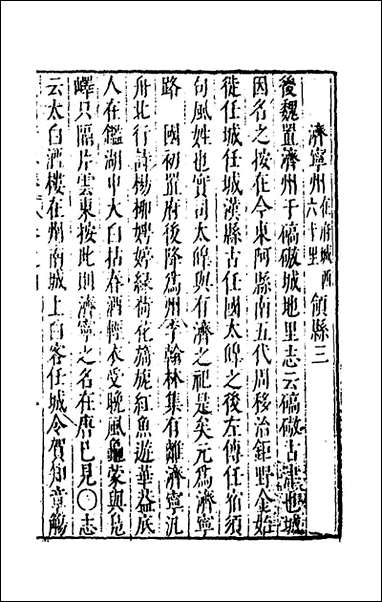 濟寧州在府城西六十里領縣三
後魏置濟州于碻磝城地里志云碻磝古津也城
因名之按在今東阿縣南五代周移治鉅野金始
徙任城任城漢縣古任國太皥之後左傳任宿須
句風姓也實司太皥與有濟之祀是矣元爲濟寧
路 國初置府後降爲州李翰林集有離濟寧汎
舟北行詩楊柳娉婷綠荷花旖旎紅魚遊華益底
人在鑑湖中大白拈春酒輕衣受晚風龜蒙與鳧
嶧只隔片雲東按此則濟寧之名在唐已見○志
云太白酒樓在州南城上白客任城令賀知章觴